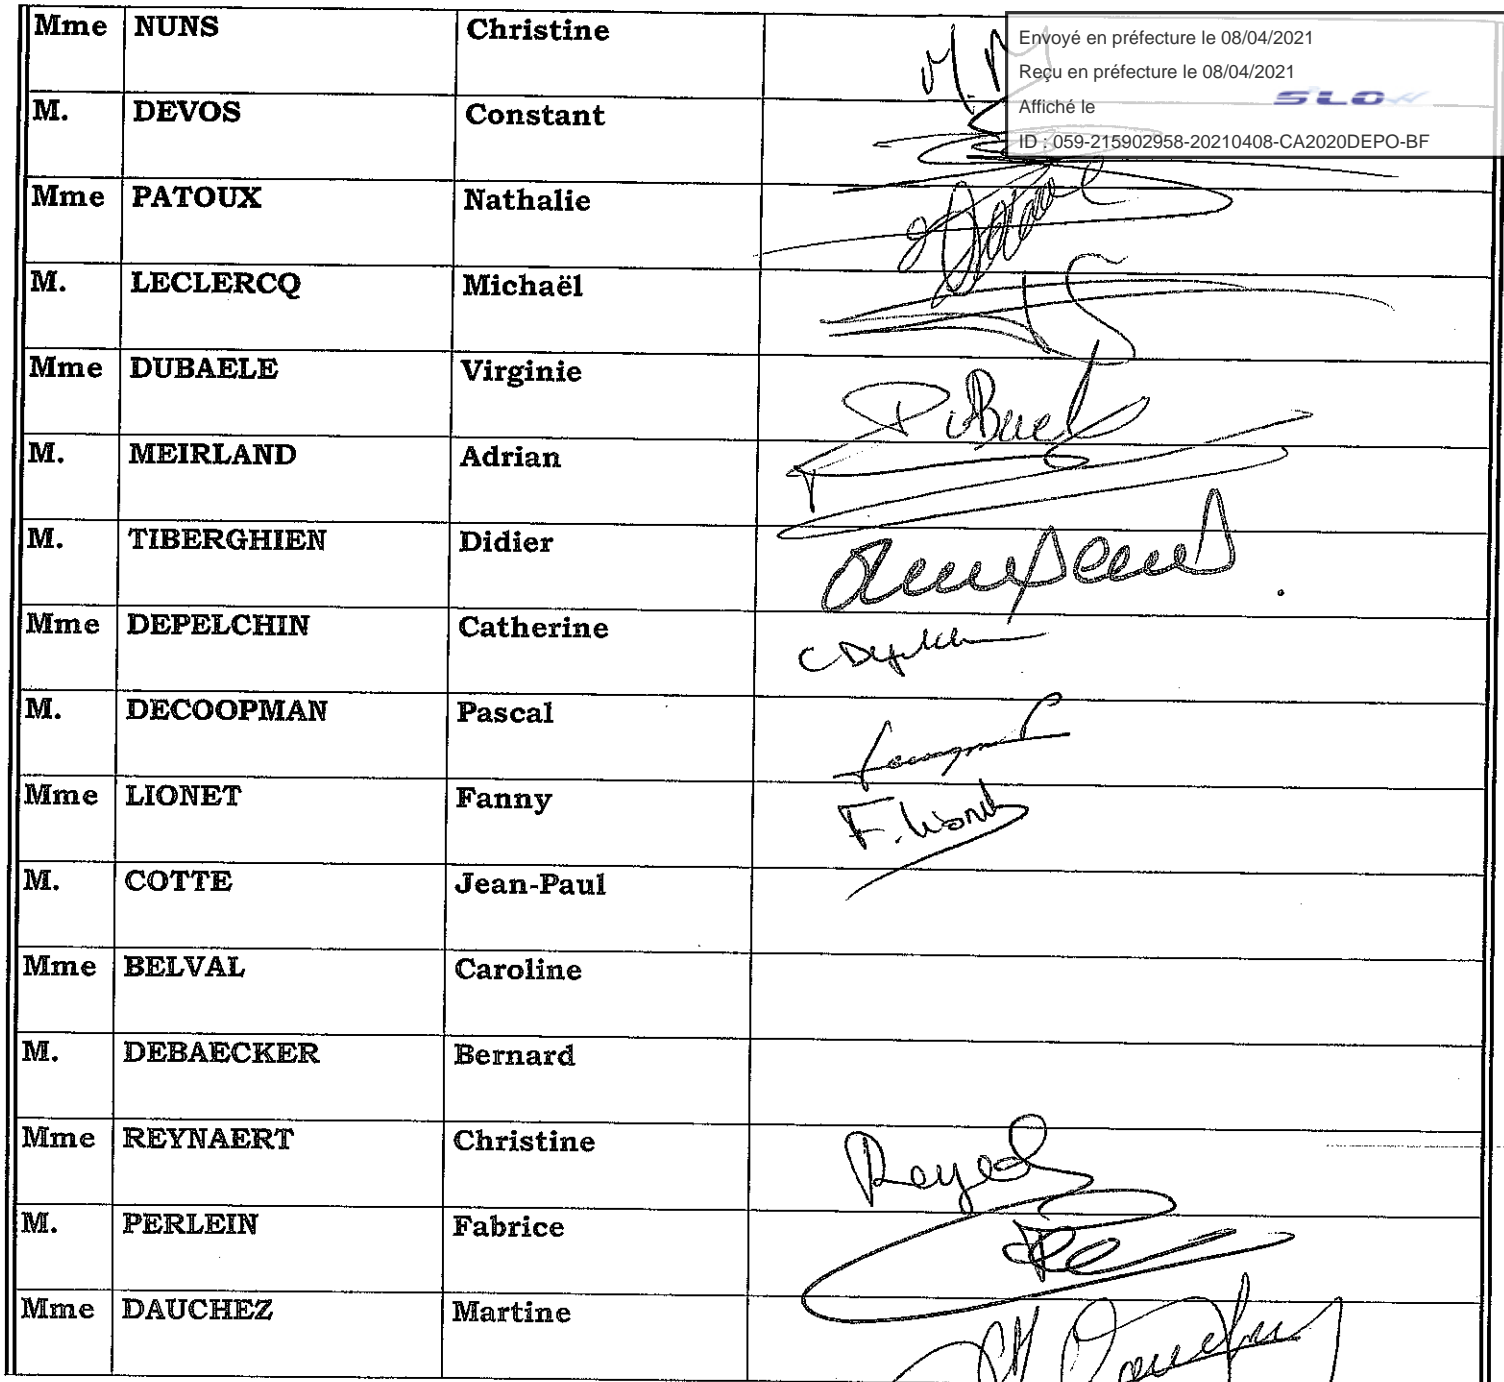 Mme NUNS Christine
Envoyé en préfecture le 08/04/2021
Reçu en préfecture le 08/04/2021
Affiché le SLOW
ID : 059-215902958-20210408-CA2020DEPO-BF
M. DEVOS Constant
Mme PATOUX Nathalie
M. LECLERCQ Michaël
Mme DUBAELE Virginie
M. MEIRLAND Adrian
M. TIBERGHIEN Didier
Mme DEPELCHIN Catherine
M. DECOOPMAN Pascal
Mme LIONET Fanny
M. COTTE Jean-Paul
Mme BELVAL Caroline
M. DEBAECKER Bernard
Mme REYNAERT Christine
M. PERLEIN Fabrice
Mme DAUCHEZ Martine